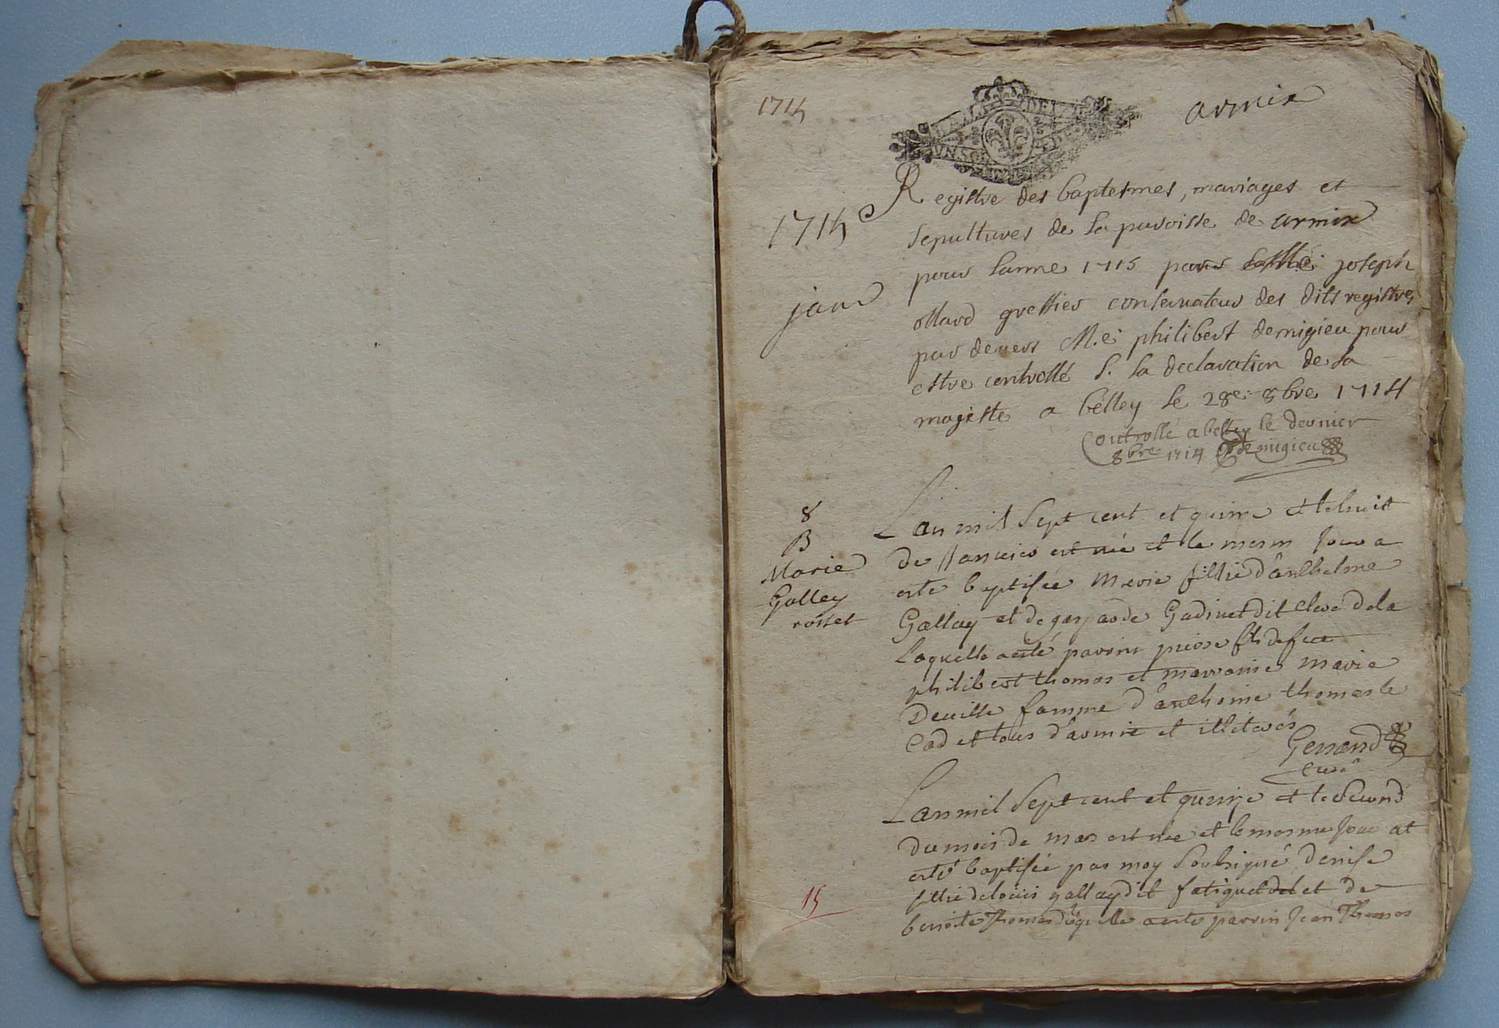 1714
armix
Registre des baptesmes, mariages et
1714
sepultures de la paroisse de armix
pour lanne 1715 joseph
janv
ollard greffier conservateur des dits registres
par devers M.e philibert demigieu pour
estre controllé S. la declaration de sa
majeste a belley le 28e 8bre 1714
Controllé a belley le dernier
8bre 1714 demigieu
8
B
Marie
Galley
rosset
Lan mil sept cent et quinze et le huit
de Janvier est née et le mesm Jour a
esté baptisée Marie fillie d'anthelme
Gallay et de gasparde Gudinet dit
Laquelle a esté parrin piere fils de feu
philibert thomas et marraine Marie
Deville famme d'anthoine thomas le
Cad et tous d'armix et illeterés
Genand
Curé
Lan mil sept cent et quinze et le second
du mois de mars est née et le mesme Jour at
esté baptisée par moy soubsigné denise
fillie de louis gallay dit fatiguet et de
benoite Thomas parrin Jean Thomas
15